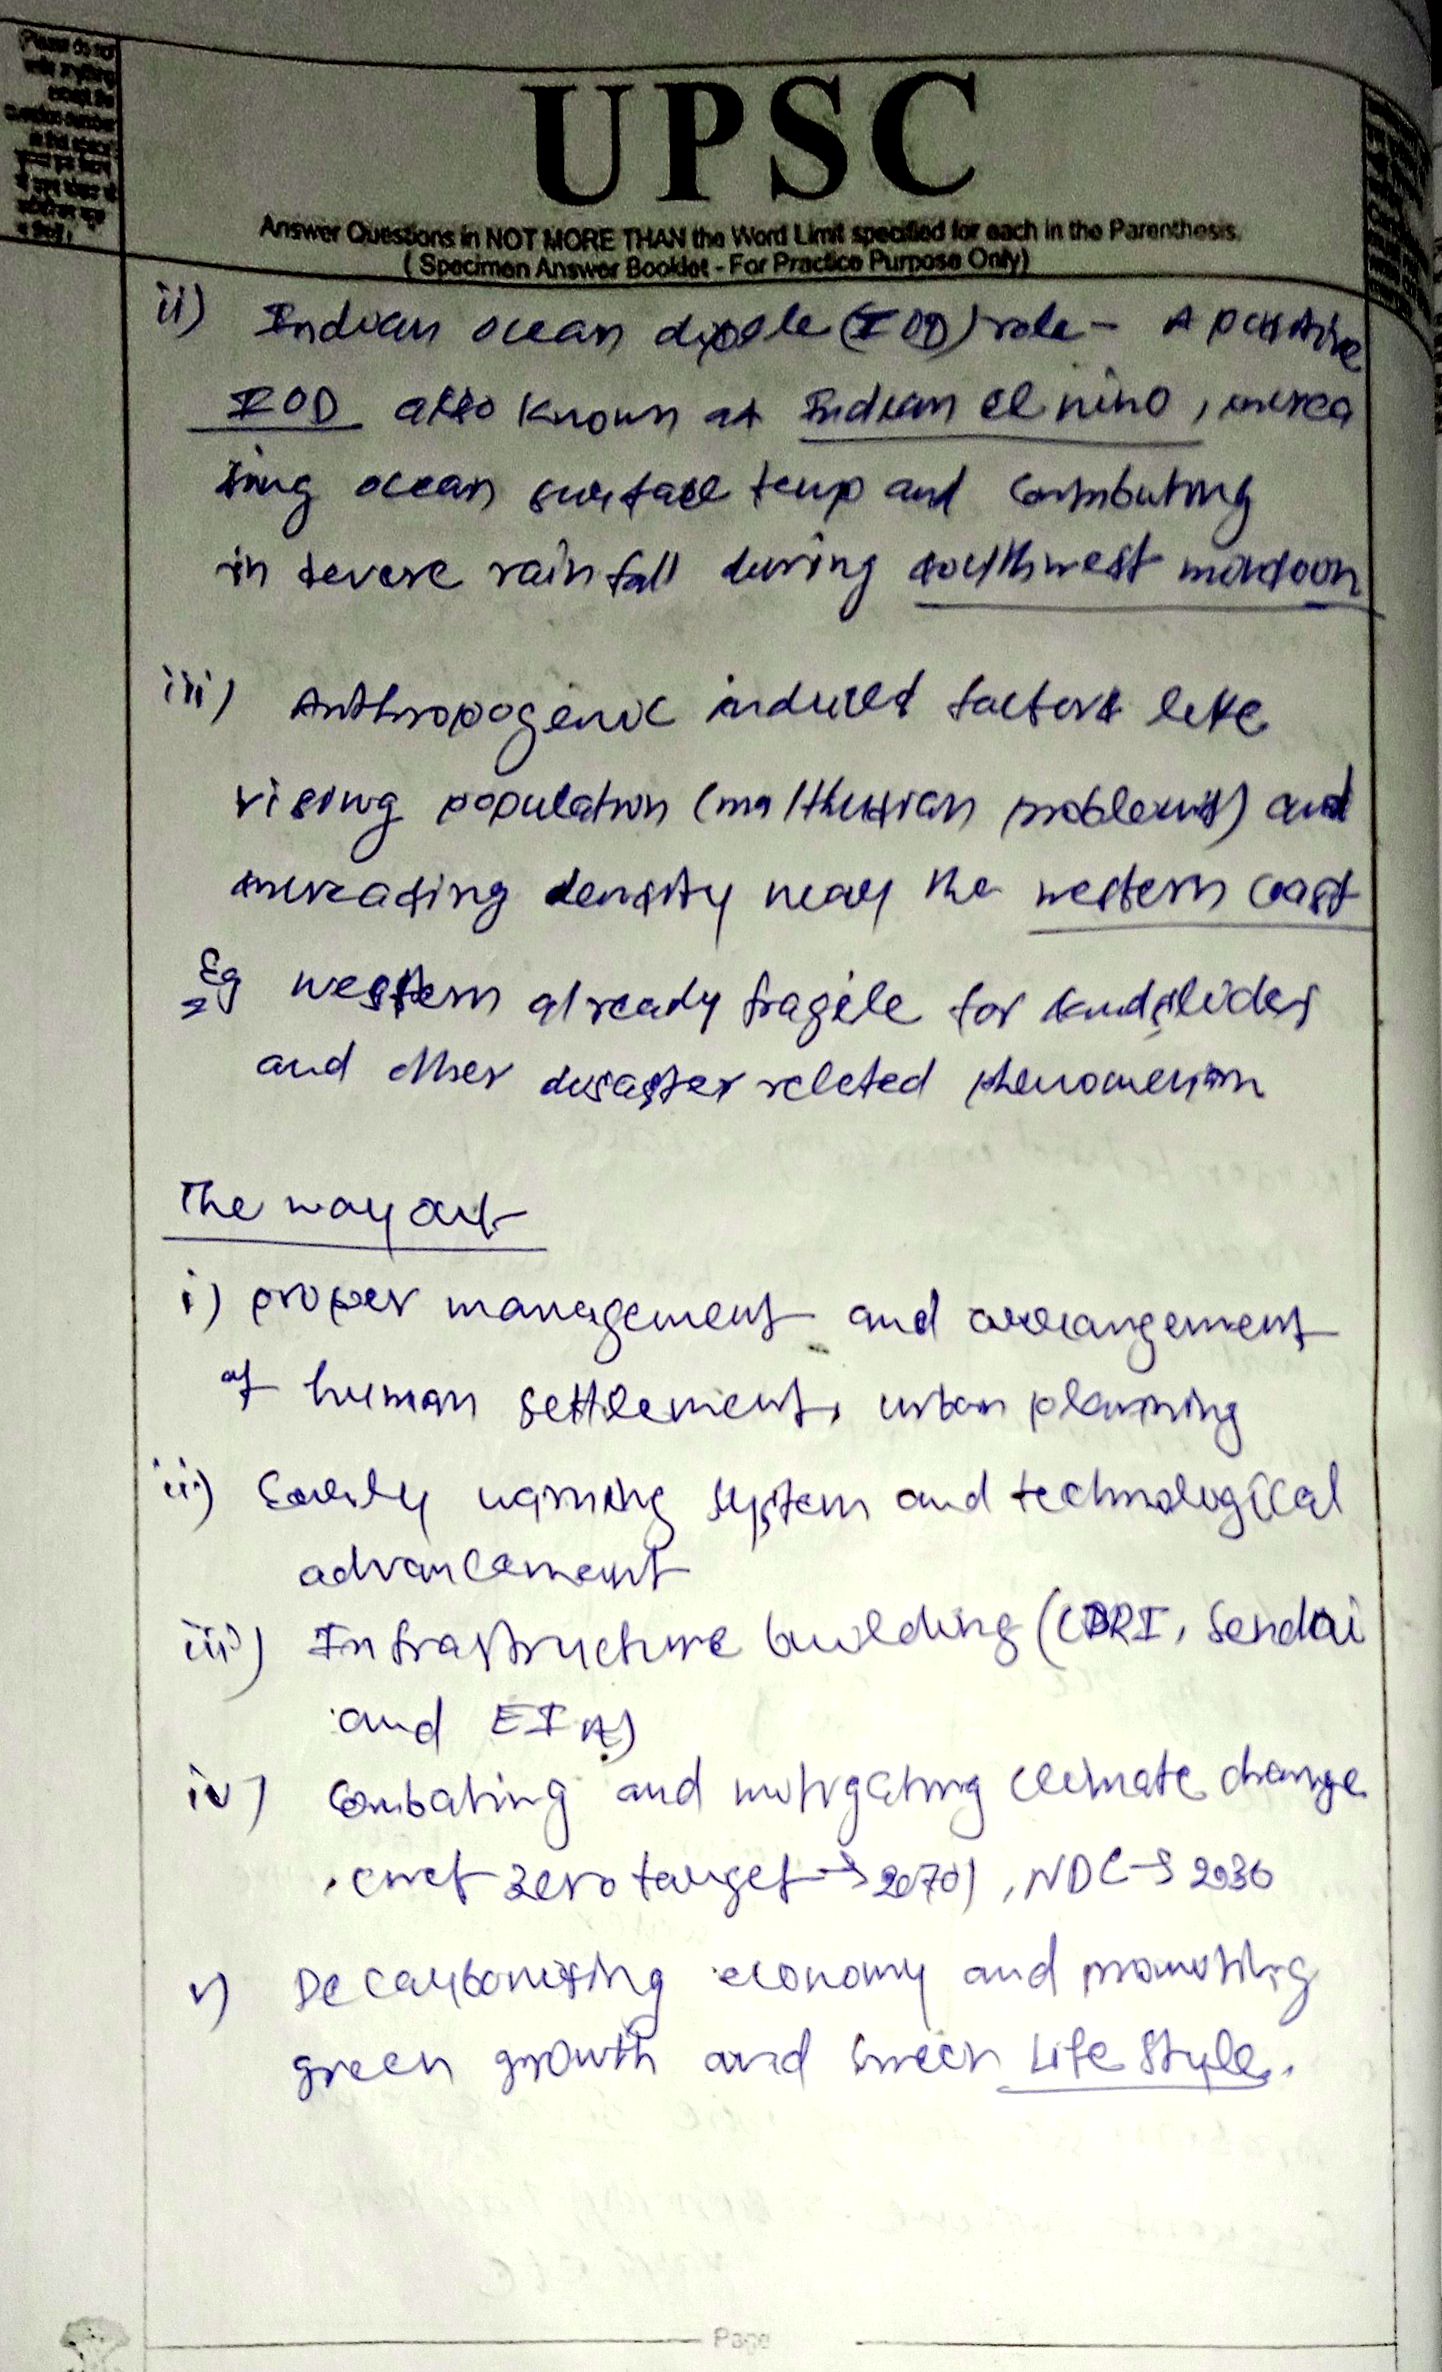 UPSC
Answer Questions in NOT MORE THAN the Word Limit specified for each in the Parenthesis.
( Specimen Answer Booklet - For Practice Purpose Only)
(Please do not
write anything
except the
question number
in this space)
ii) Indian ocean dipole (IOD) role - A positive
IOD also known as Indian el nino, increa
sing ocean surface temp and contributing
in severe rainfall during southwest monsoon
iii) Anthropogenic induced factors like
rising population (malthusian problems) and
increasing density near the western coast
Eg western already fragile for landslides
and other disaster related phenomenon
The way out-
i) proper management and arrangement
of human settlement, urban planning
ii) Early warning system and technological
advancement
iii) Infrastructure building (CDRI, Sendai
and EIA)
iv) Combating and mitigating climate change
(net zero target → 2070), NDC → 2030
v) Decarbonising economy and promoting
green growth and Green Life Style.
Page